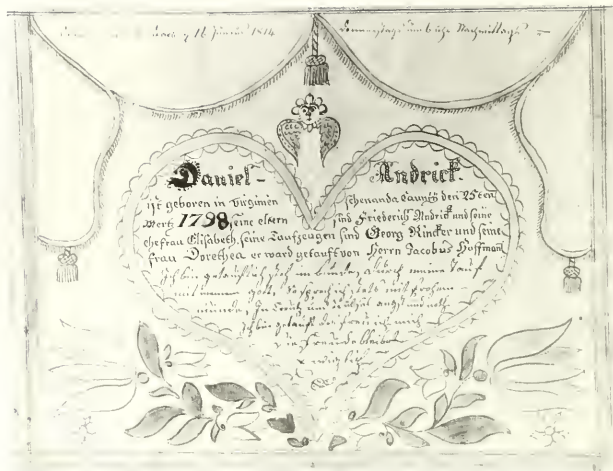 16 Junius 1814 Donnerstags um 6 uhr Nachmittags
Daniel Andrick
ist geboren in Virginien schenanda Caunty den 25ten
Mertz 1798 seine eltern sind Friederich Andrick und seine
ehefrau Elisabeth, seine Taufzeugen sind Georg Rincker und seine
frau Dorethea er ward getaufft von Herrn Jacobus Hoffman
Ich bin getaufft ich steh im bunde, durch meine tauf
mit meinem Gott, so sprech ich stets mit frohem
munde, In Creutz und trübsal angst und noth
Ich bin getauft des freu ich mich
die Freude bleibet
ewiglich